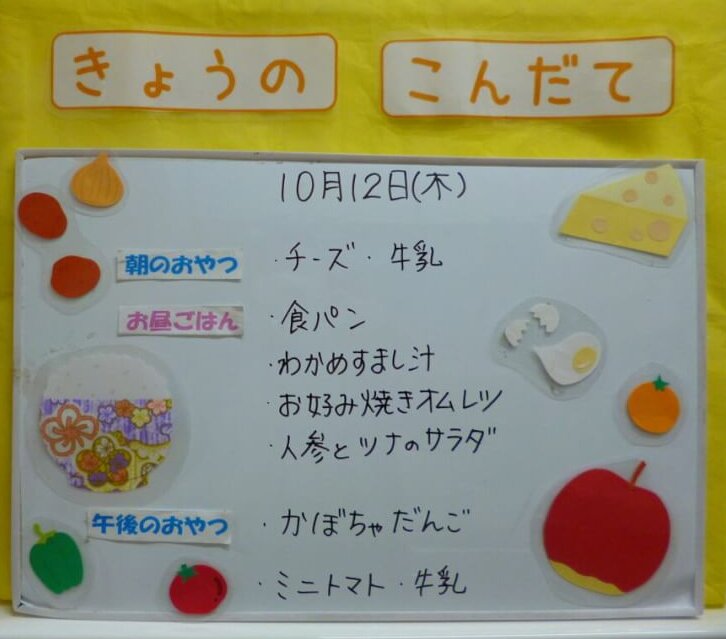 きょうの こんだて
10月12日(木)
朝のおやつ ・チーズ・牛乳
お昼ごはん ・食パン
・わかめすまし汁
・お好み焼きオムレツ
・人参とツナのサラダ
午後のおやつ ・かぼちゃだんご
・ミニトマト・牛乳